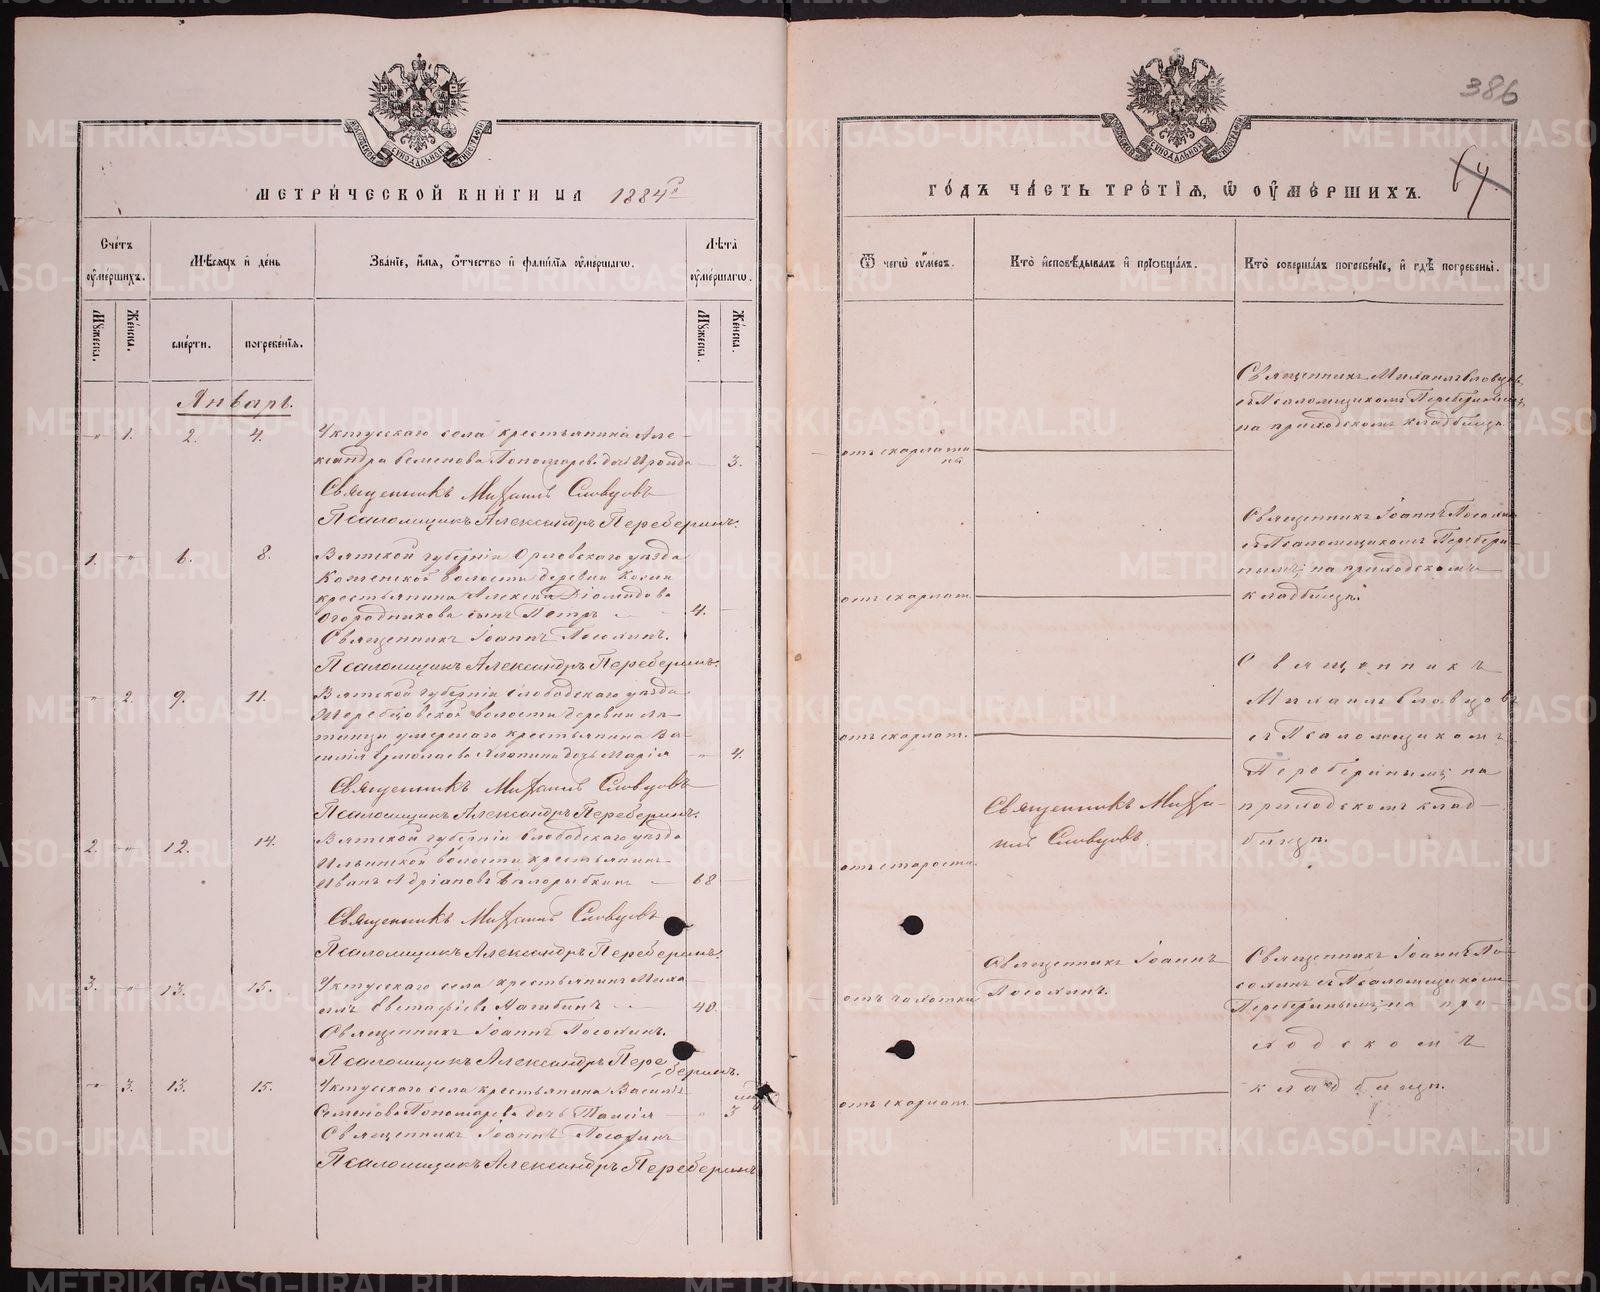 386
64.
МЕТРИ́ЧЕСКОЙ КНИ́ГИ НА 1884 г.
ГО́ДЪ ЧА́СТЬ ТРЕ́ТІЯ, Ѿ ОУ҆МЕ́РШИХЪ.
Сче́тъ оу҆ме́ршихъ.
Мѣсяцъ и҆ де́нь
Зва́ніе, и҆́мя, ѻ҆́тчество и҆ фами́лія оу҆ме́ршагѡ.
Лѣ́та оу҆ме́ршагѡ.
Му́жеска.
Же́нска.
сме́рти.
погребе́нія.
Му́жеска.
Же́нска.
Ѿ чегѡ̀ оу҆́меръ.
Кто̀ и҆сповѣ́дывалъ и҆ пріобща́лъ.
Кто̀ соверша́лъ погребе́ніе, и҆ гдѣ̀ погребены̀.
Январь.
1. 2. 4. Уктусскаго села крестьянина Але-
ксандра Семенова Пономарева дочь Ираида 3.
Священникъ Михаилъ Словцовъ
Псаломщикъ Александръ Переберинъ.
отъ скарлати
ны
Священникъ Михаилъ Словцовъ
съ Псаломщикомъ Переберинымъ,
на приходскомъ кладбищѣ
1. 6. 8. Вятской губерніи Орловскаго уѣзда
волости деревни
крестьянина Алексѣя Діомидова
Огородникова сынъ Петръ 4.
Священникъ Іоаннъ Посохинъ.
Псаломщикъ Александръ Переберинъ.
отъ скарлат.
Священникъ Іоаннъ Посохин
съ Псаломщикомъ Перебери-
нымъ; на приходскомъ
кладбищѣ.
2. 9. 11. Вятской губерніи Слободскаго уѣзда
волости деревни
умершаго крестьянина Ва-
силія Ермолаева дочь Марія 4.
Священникъ Михаилъ Словцовъ
Псаломщикъ Александръ Переберинъ.
отъ скарлат.
Священникъ
Михаилъ Словцовъ
съ Псаломщикомъ
Переберинымъ; на
приходскомъ клад-
бищѣ.
2. 12. 14. Вятской губерніи Слободскаго уѣзда
Ильинской волости крестьянинъ
Иванъ Адріановъ Бѣлорыбкинъ 68
Священникъ Михаилъ Словцовъ
Псаломщикъ Александръ Переберинъ.
отъ старости.
Священникъ Миха-
илъ Словцовъ.
3. 13. 15. Уктусскаго села крестьянинъ Миха-
илъ Евстафіевъ Нагибинъ 40.
Священникъ Іоаннъ Посохинъ.
Псаломщикъ Александръ Пере-
беринъ.
отъ чахотки
Священникъ Іоаннъ
Посохинъ.
Священникъ Іоаннъ По-
сохинъ съ Псаломщикомъ
Переберинымъ; на при-
ходскомъ
кладбищѣ.
3. 13. 15. Уктусскаго села крестьянина Василія
Семенова Пономарева дочь Таисія 3
Священникъ Іоаннъ Посохинъ
Псаломщикъ Александръ Переберинъ
отъ скарлат.
METRIKI.GASO-URAL.RU